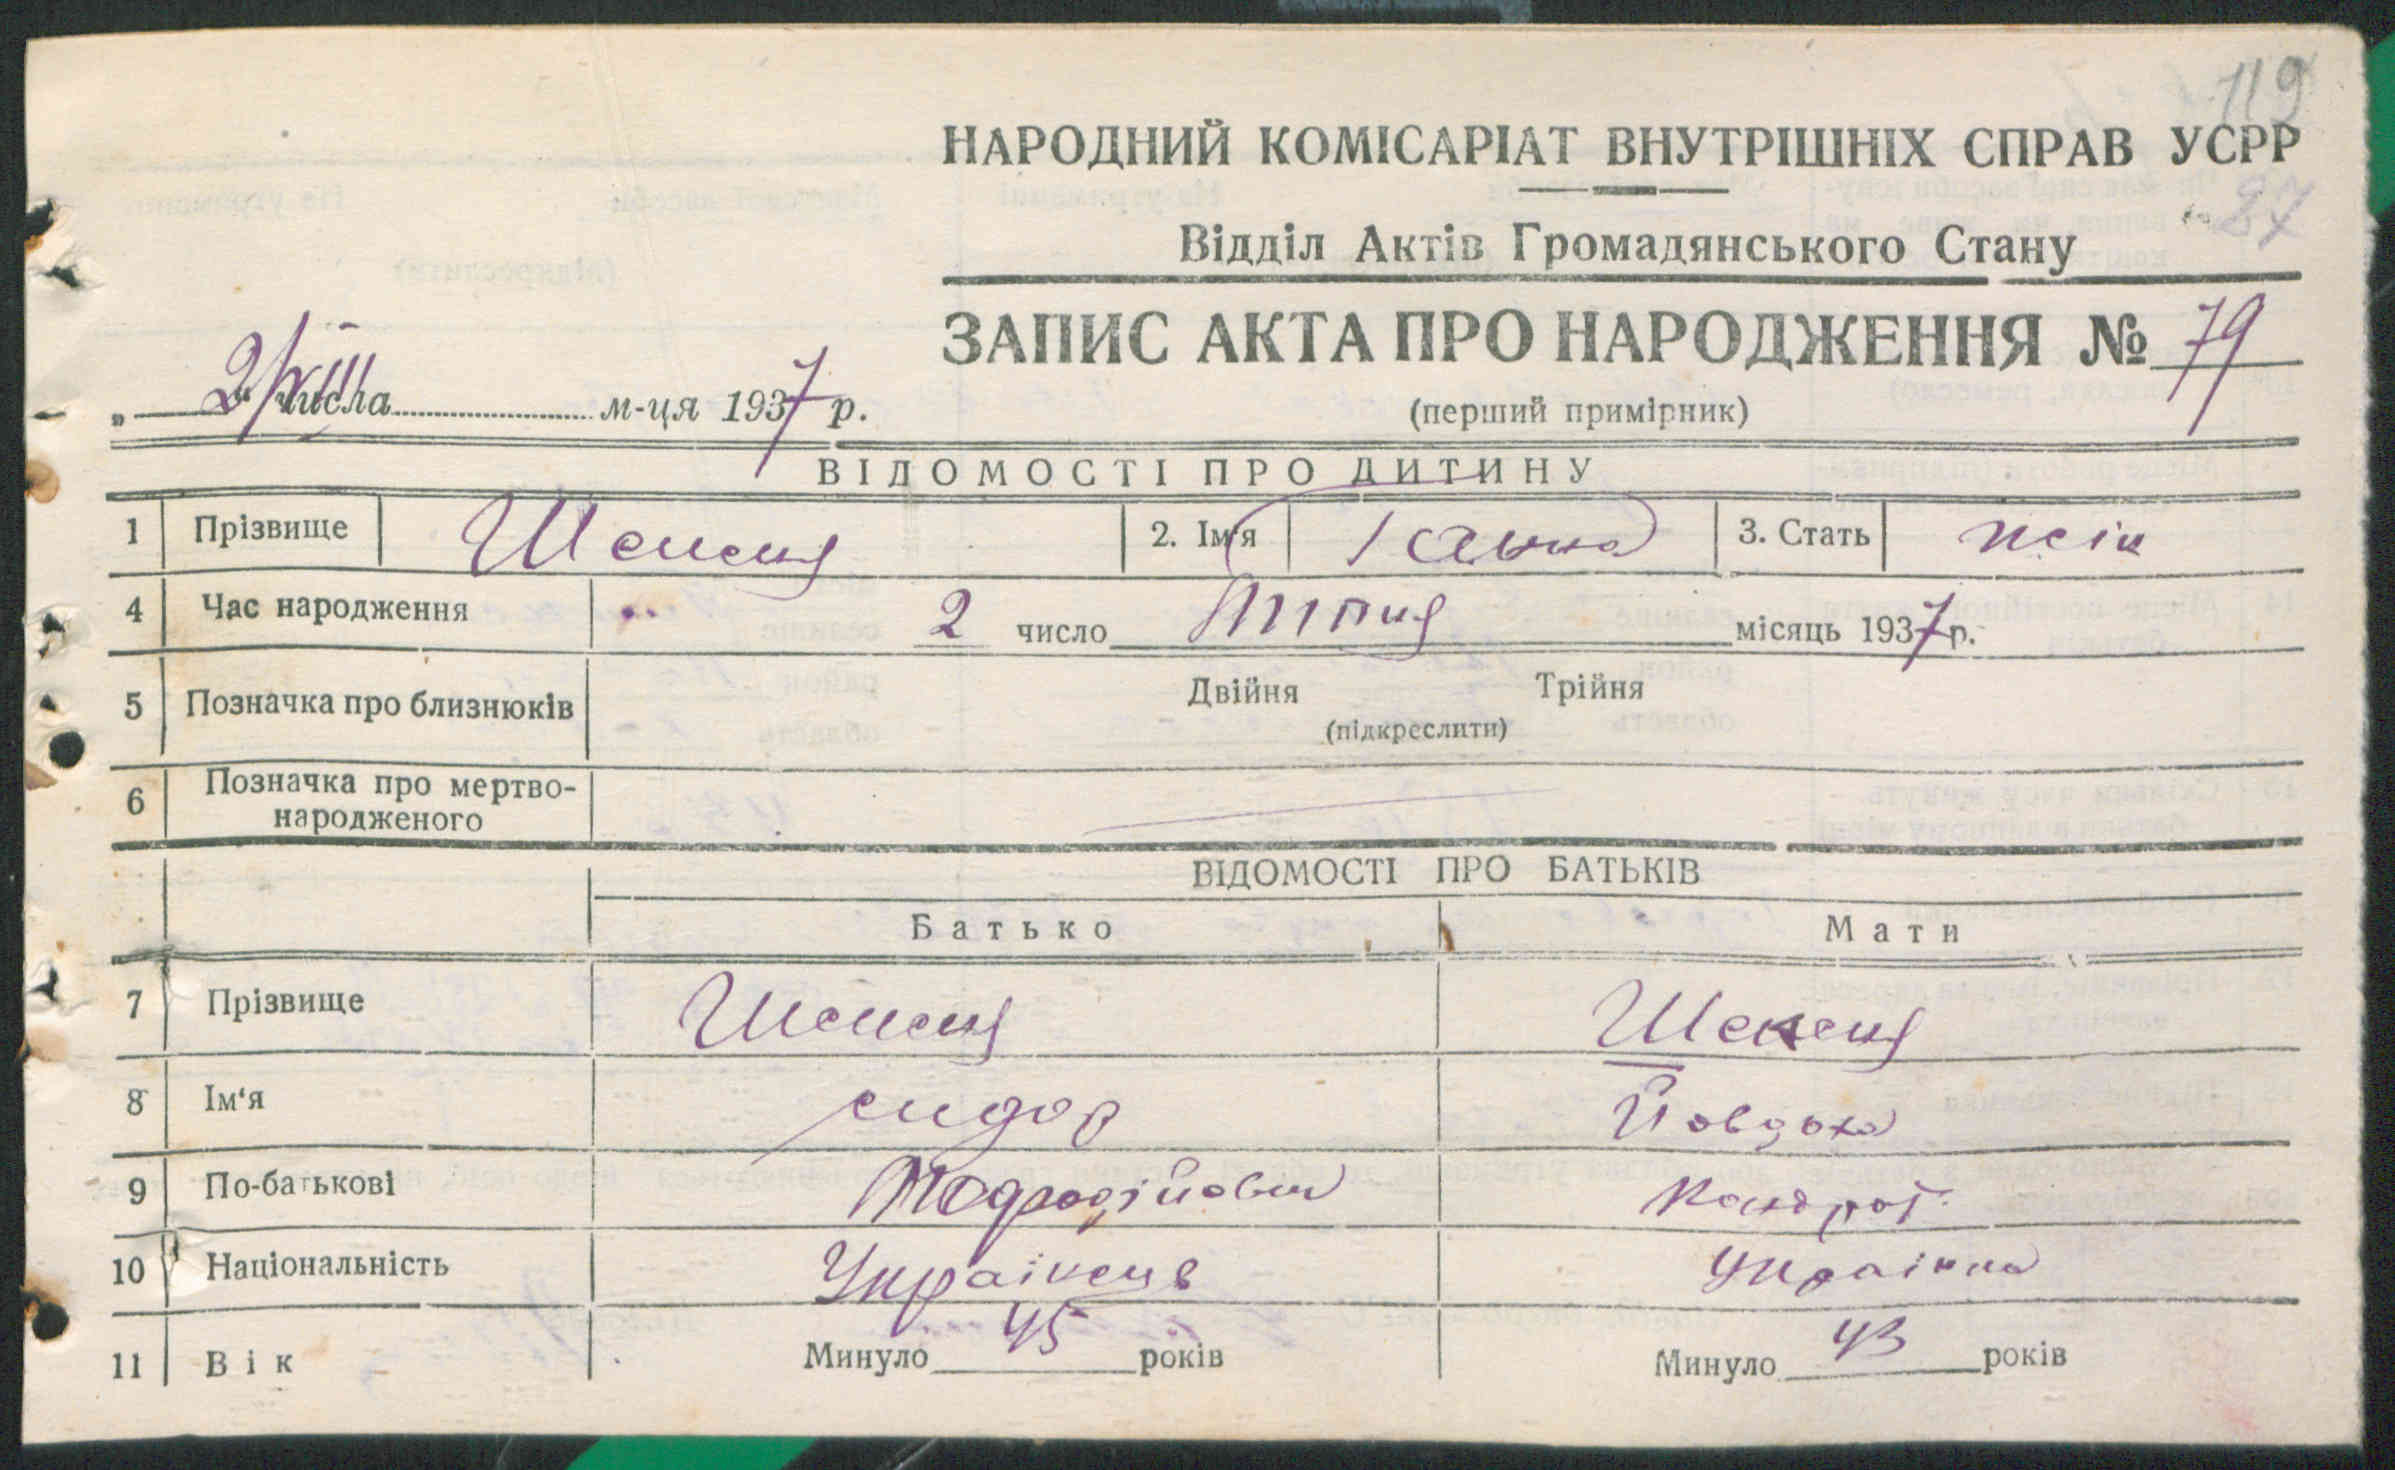 119
НАРОДНИЙ КОМІСАРІАТ ВНУТРІШНІХ СПРАВ УСРР
Відділ Актів Громадянського Стану
ЗАПИС АКТА ПРО НАРОДЖЕННЯ № 79
„ 2/VIII числа м-ця 1937 р.
(перший примірник)
ВІДОМОСТІ ПРО ДИТИНУ
1 Прізвище Шепеня 2. Ім'я Ганна 3. Стать жін
4 Час народження 2 число Липня місяць 1937 р.
5 Позначка про близнюків Двійня Трійня
(підкреслити)
6 Позначка про мертво-
народженого
ВІДОМОСТІ ПРО БАТЬКІВ
Батько Мати
7 Прізвище
8 Ім'я сидор Йовдоха
9 По-батькові Кондрат.
10 Національність Українець Українка
11 Вік Минуло 45 років Минуло 43 років